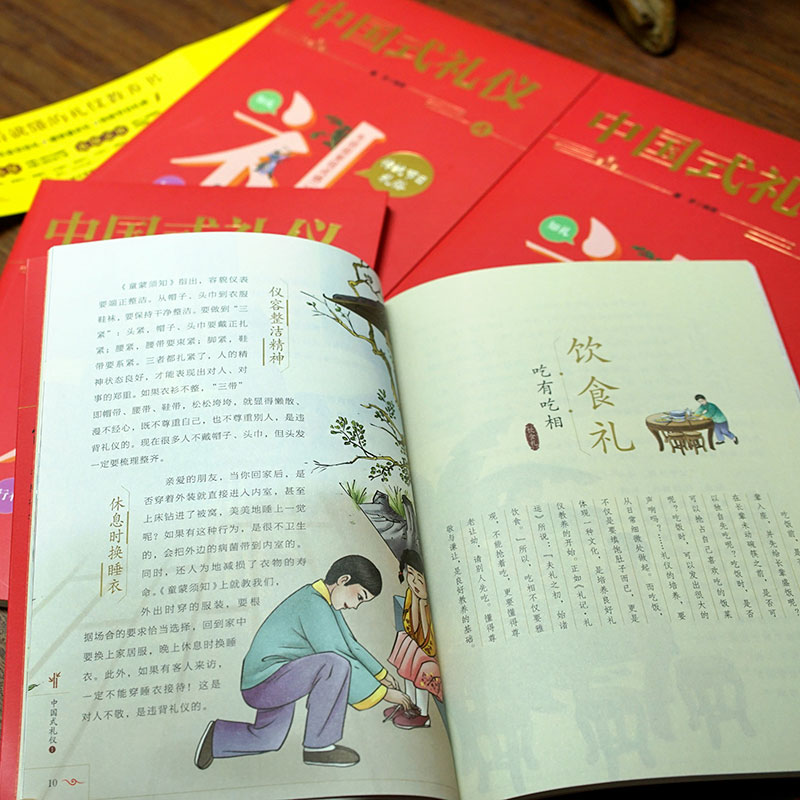 中国式礼仪
中国式礼
知礼
中国式礼仪
仪容整洁精神
《童蒙须知》指出，容貌仪表
要端正整洁。从帽子、头巾到衣服
鞋袜，要保持干净整洁。要做到“三
紧”：头紧，帽子、头巾要戴正扎
紧；腰紧，腰带要束紧；脚紧，鞋
带要系紧。三者都扎紧了，人的精
神状态良好，才能表现出对人、对
事的郑重。如果衣衫不整，“三带”
即帽带、腰带、鞋带，松松垮垮，就显得懒散、
漫不经心，既不尊重自己，也不尊重别人，是违
背礼仪的。现在很多人不戴帽子、头巾，但头发
一定要梳理整齐。
休息时换睡衣
亲爱的朋友，当你回家后，是
否穿着外装就直接进入内室，甚至
上床钻进了被窝，美美地睡上一觉
呢？如果有这种行为，是很不卫生
的，会把外边的病菌带到内室的。
同时，还人为地减损了衣物的寿
命。《童蒙须知》上就教我们，
外出时穿的服装，要根
据场合的要求恰当选择，回到家中
要换上家居服，晚上休息时换睡
衣。此外，如果有客人来访，
一定不能穿睡衣接待！这是
对人不敬，是违背礼仪的。
中国式礼仪
10
饮食礼
吃有吃相
辈入座，并先给长辈盛饭呢？
在长辈未动碗筷之前，是否可
以独自先吃呢？吃饭时，是否
可以独占自己喜欢吃的饭菜
呢？吃饭时，可以发出很大的
声响吗？……礼仪的培养，要
从日常细微处做起。而吃饭，
不仅是要填饱肚子而已，更是
体现一种文化，是培养良好礼
仪教养的开始。正如《礼记·礼
运》所说：“夫礼之初，始诸
饮食。”所以，吃相不仅要雅
观，不能抢着吃，更要懂得尊
老让幼，请别人先吃。懂得尊
敬与谦让，是良好教养的基础。